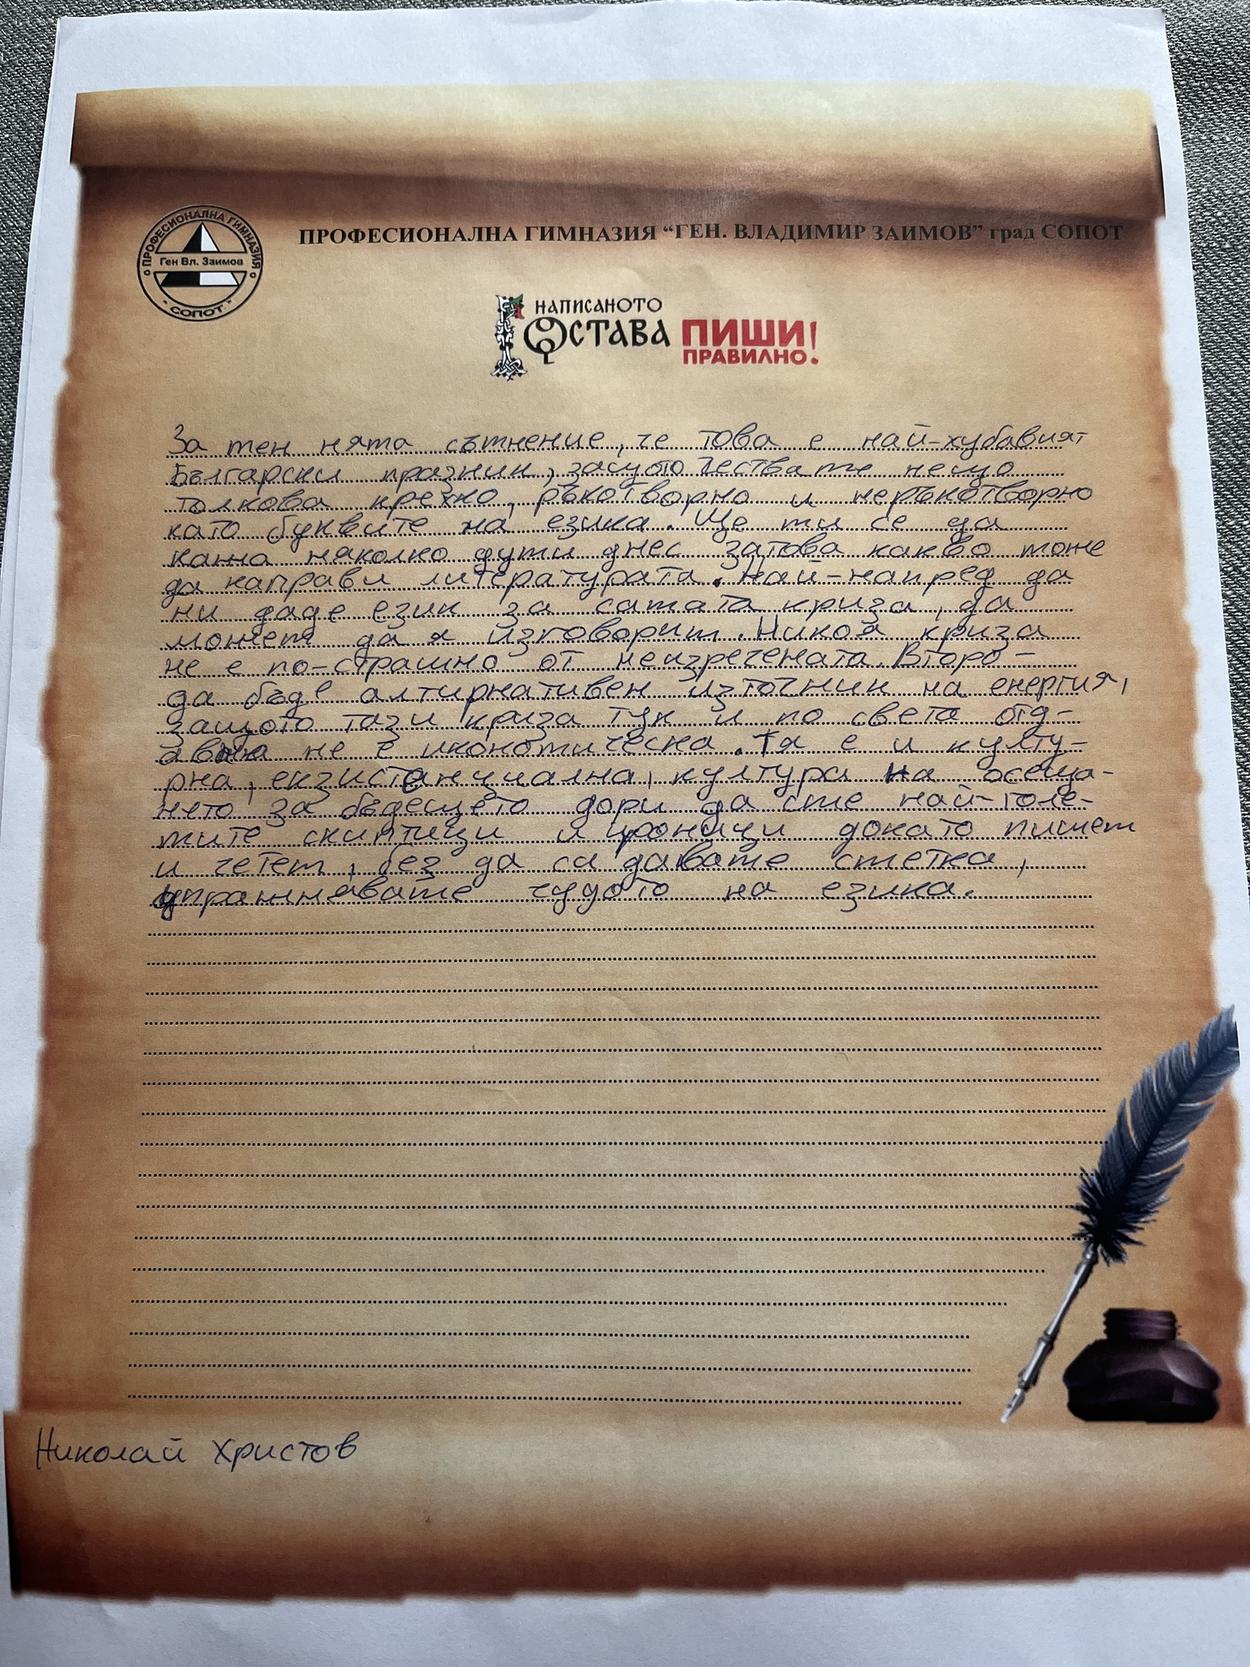 ПРОФЕСИОНАЛНА ГИМНАЗИЯ
Ген Вл. Заимов
СОПОТ
ПРОФЕСИОНАЛНА ГИМНАЗИЯ “ГЕН. ВЛАДИМИР ЗАИМОВ” град СОПОТ
НАПИСАНОТО
ОСТАВА ПИШИ
ПРАВИЛНО!
За мен няма съмнение, че това е най-хубавият
Български празник, защото честваме нещо
толкова крехко, ръкотворно и неръкотворно
като буквите на езика. Ще ми се да
кажа няколко думи днес затова какво може
да направи литературата. Най-напред да
ни даде език за самата криза, да
можем да я изговорим. Никоя криза
не е по-страшно от неизречената. Второ-
да бъде алтирнативен източник на енергия,
защото тази криза тук и по света отд-
авна не е икономическа. Тя е и култу-
рна, екзистенциална, култура на осеща-
нето за бъдещето дори да сме най-голе-
мите скиптици и ироници докато пишем
и четем, без да си даваме сметка,
упражняваме чудото на езика.
Николай Христов